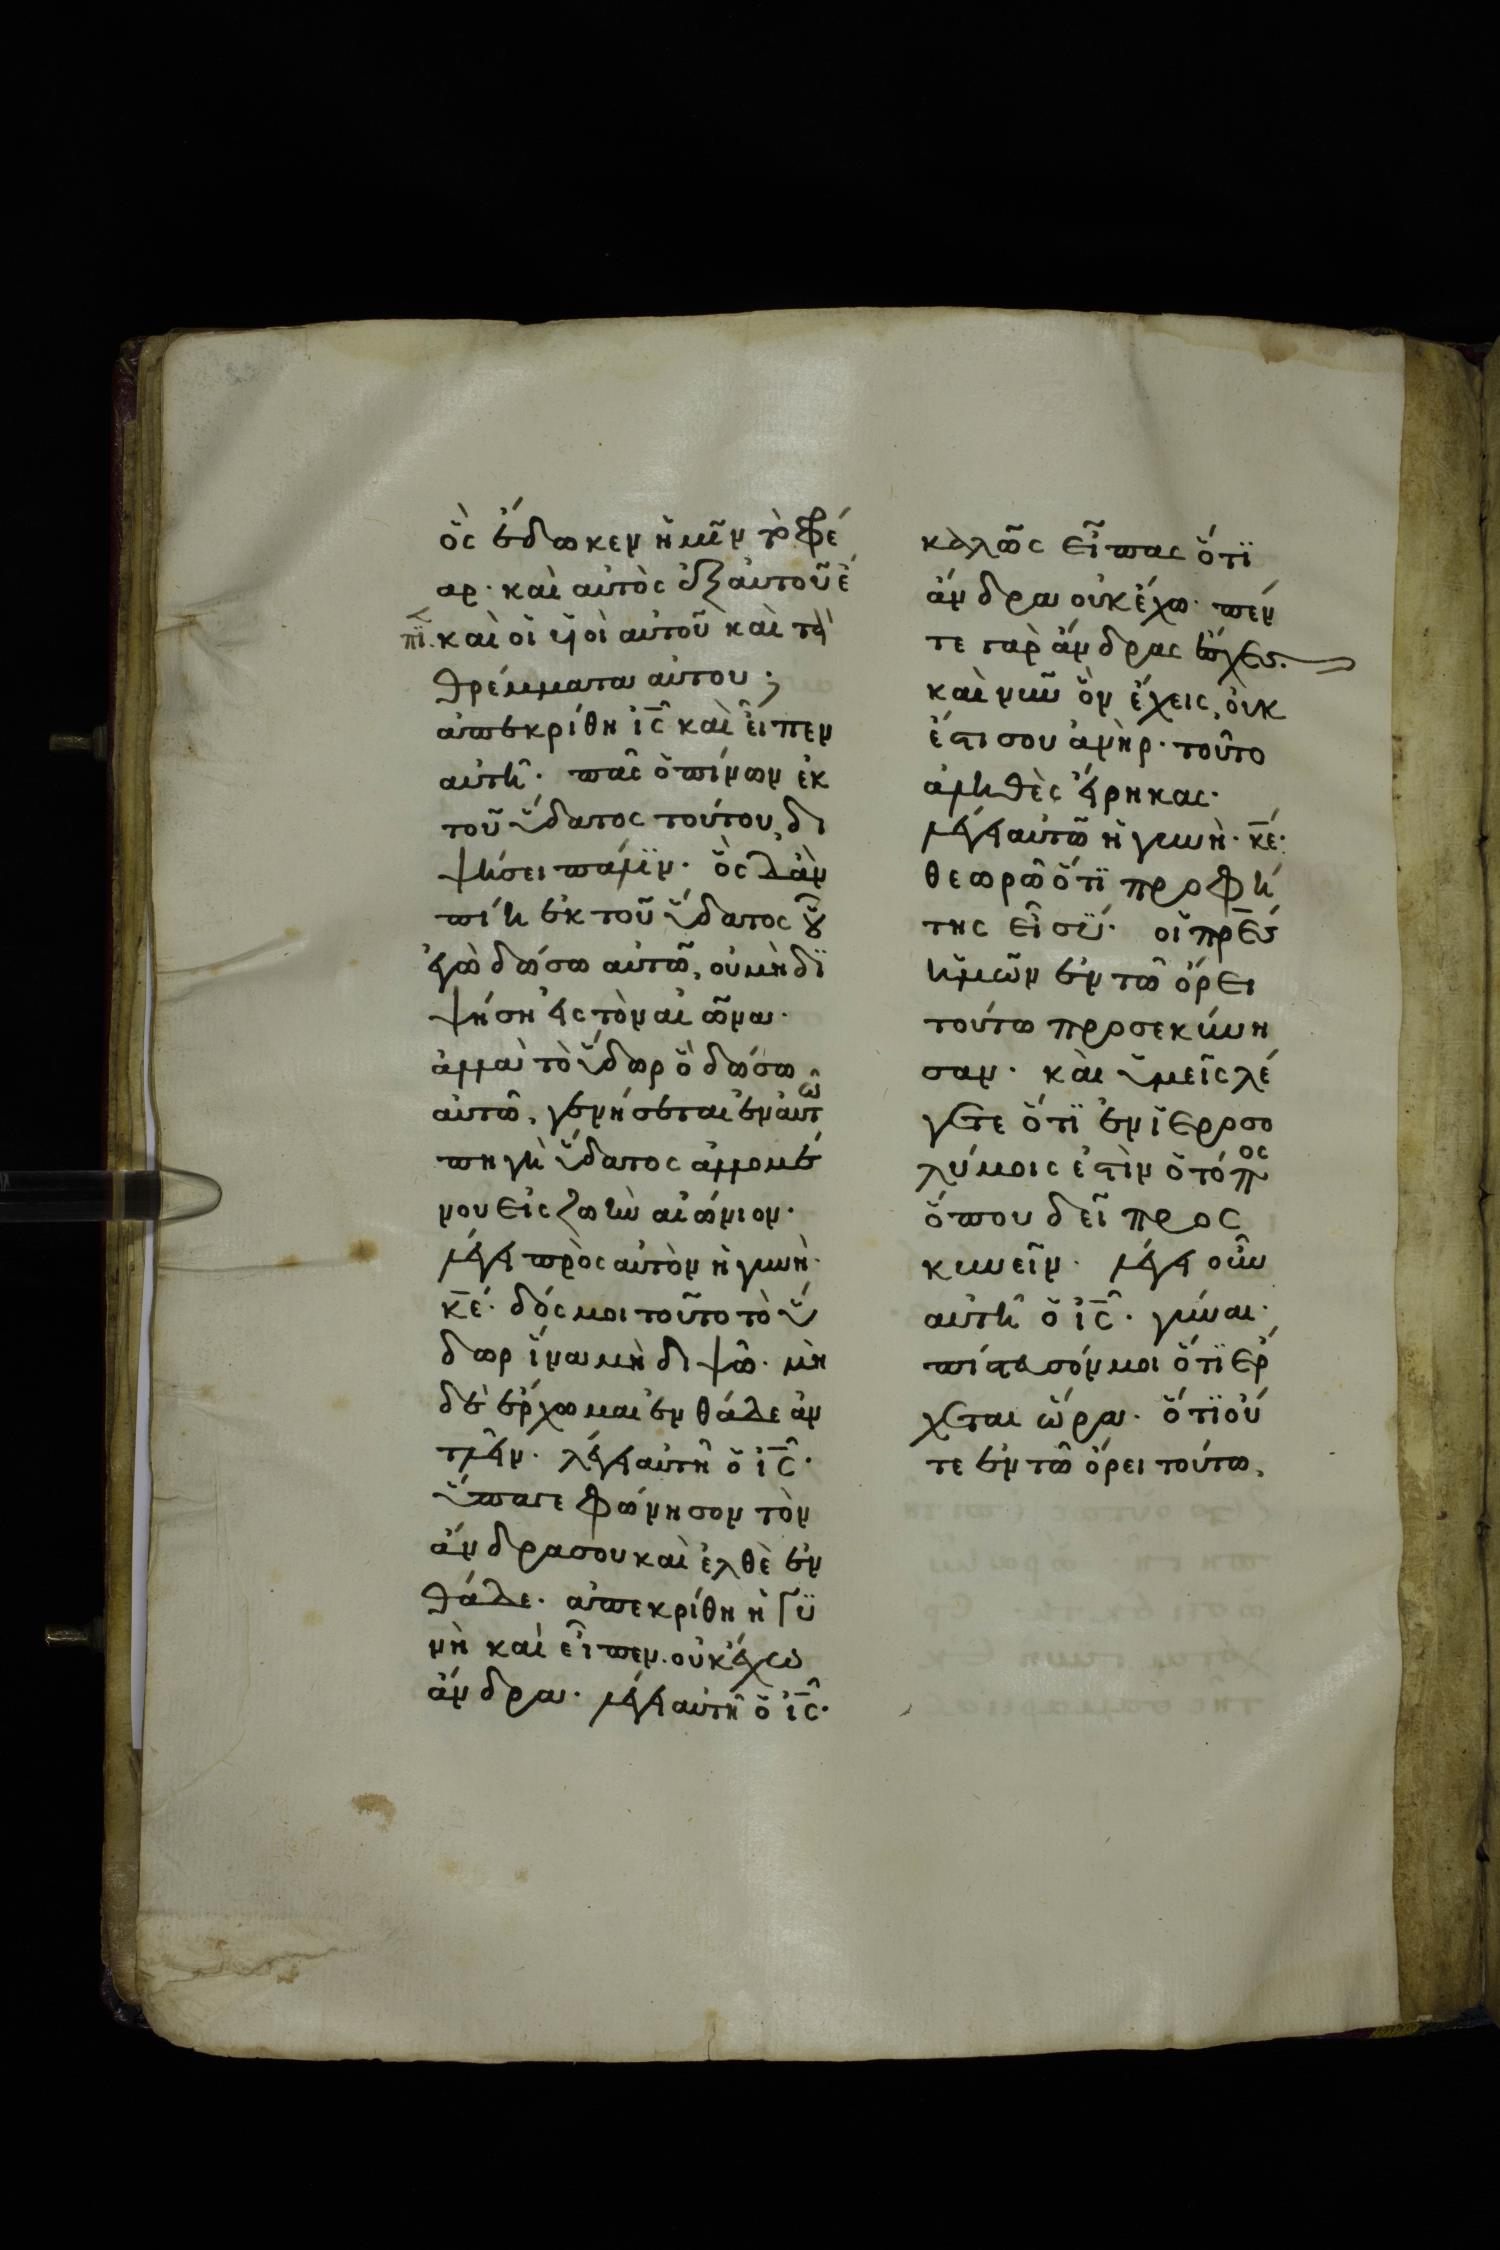 ὃς ἔδωκεν ἡμῖν τὸ φρέ
αρ· καὶ αὐτὸς ἐξ αὐτοῦ ἔ
πϊε. καὶ οἱ υἱοὶ αὐτοῦ καὶ τὰ
θρέμματα αὐτου;
ἀπεκρίθη ἰς καὶ εἶπεν
αὐτῆ· πᾶς ὁ πίνων ἐκ
τοῦ ὕδατος τούτου, δι
ψήσει πάλϊν· ὃς δ' ἂν
πίη ἐκ τοῦ ὕδατος οὗ
ἐγὼ δώσω αὐτῶ, οὐ μὴ δϊ
ψήση εἰς τὸν αἰῶνα·
ἀλλὰ τὸ ὕδωρ ὃ δώσω
αὐτῶ, γενήσεται ἐν αὐτῶ
πηγὴ ὕδατος ἁλλομέ
νου εἰς ζωὴν αἰώνιον·
λέγει πρὸς αὐτὸν ἡ γυνὴ·
κε· δός μοι τοῦτο τὸ ὕ
δωρ ἵνα μὴ διψῶ· μὴ
δὲ ἔρχωμαι ἐνθάδε ἀν
τλεῖν· λέγει αὐτῆ ὁ ἰς·
ὕπαγε φώνησον τὸν
ἄνδρα σου καὶ ἐλθὲ ἐν
θάδε· ἀπεκρίθη ἡ γϋ
νὴ καὶ εἶπεν. οὐκ ἔχω
ἄνδρα· λέγει αὐτῆ ὁ ἰς·
καλῶς εἶπας ὅτϊ
ἄνδρα οὐκ ἔχω· πέν
τε γαρ ἄνδρας ἔσχες.
καὶ νῦν ὃν ἔχεις, οὐκ
ἔστι σου ἀνὴρ· τοῦτο
ἀληθὲς εἴρηκας·
λέγει αὐτῶ ἡ γυνὴ· κε·
θεωρῶ ὅτϊ προφή
της εἶ σϋ· οἱ πρες
ἡμῶν ἐν τῶ ὄρει
τούτω προσεκύνη
σαν· καὶ ὑμεῖς λέ
γετε ὅτϊ ἐν ἱεροσο
λύμοις ἐστὶν ὁ τόπος
ὅπου δεῖ προς
κυνεῖν· λέγει οὖν
αὐτῆ ὁ ἰς· γύναι·
πίστευσόν μοι ὅτϊ ἔρ
χεται ὥρα· ὅτϊ οὔ
τε ἐν τῶ ὄρει τούτω,